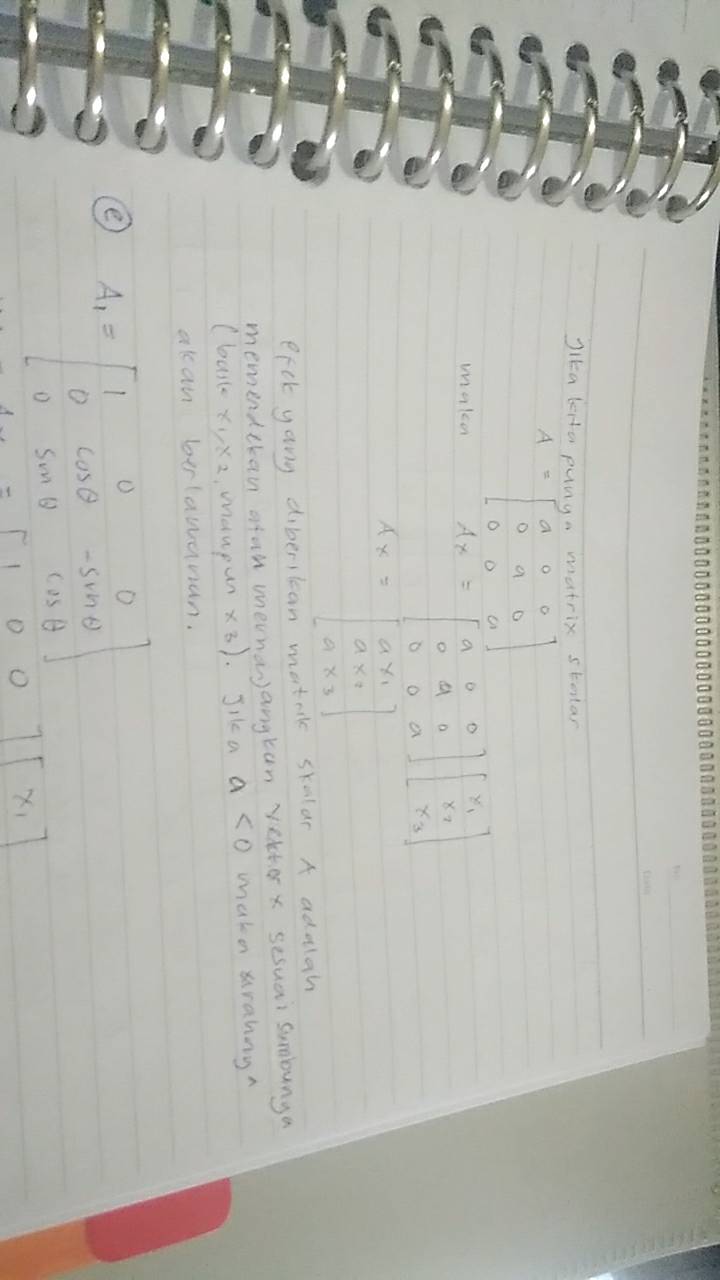 Jika kita punya matrix skalar
A = [a 0 0
0 a 0
0 0 a]
maka Ax = [a 0 0
0 a 0
0 0 a] [x1
x2
x3]
Ax = [ax1
ax2
ax3]
efek yang diberikan matrik skalar A adalah
memendekan atau memanjangkan vektor x sesuai sumbunya
(baik x1, x2, maupun x3). Jika a < 0 maka arahnya
akan berlawanan.
(e) A1 = [1 0 0
0 cosθ -sinθ
0 sinθ cosθ]
Ax = [1 0 0] [x1]